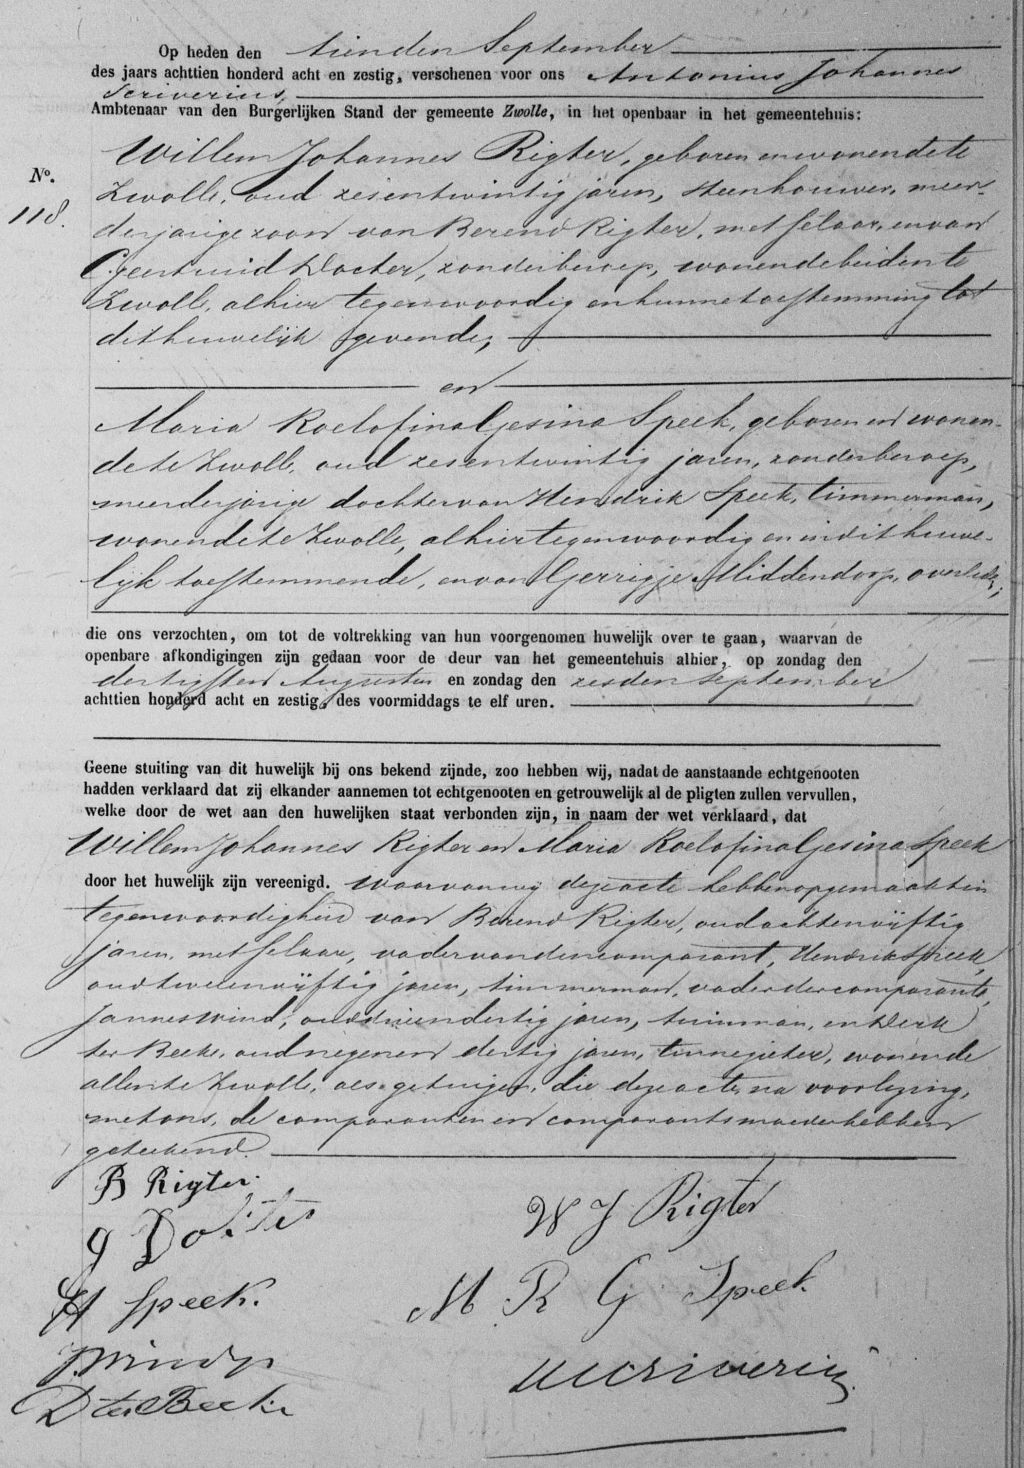 Op heden den tienden September
des jaars achttien honderd acht en zestig, verschenen voor ons Antonius Johannes
Scriverius,
Ambtenaar van den Burgerlijken Stand der gemeente Zwolle, in het openbaar in het gemeentehuis:
No.
118.
Willem Johannes Rigter, geboren en wonende te
Zwolle, oud zesentwintig jaren, steenhouwer, meer-
derjarige zoon van Berend Rigter, metselaar, en van
Geertruid Docter, zonder beroep, wonende beiden te
Zwolle, alhier tegenwoordig en hunne toestemming tot
dit huwelijk gevende;
en
Maria Roelofina Gesina Speek, geboren en wonen-
de te Zwolle, oud zesentwintig jaren, zonder beroep,
meerderjarige dochter van Hendrik Speek, timmerman,
wonende te Zwolle, alhier tegenwoordig en in dit huwe-
lijk toestemmende, en van Gerrigje Middendorp, overleden;
die ons verzochten, om tot de voltrekking van hun voorgenomen huwelijk over te gaan, waarvan de
openbare afkondigingen zijn gedaan voor de deur van het gemeentehuis alhier, op zondag den
dertigsten Augustus en zondag den zesden September
achttien honderd acht en zestig, des voormiddags te elf uren.
Geene stuiting van dit huwelijk bij ons bekend zijnde, zoo hebben wij, nadat de aanstaande echtgenooten
hadden verklaard dat zij elkander aannemen tot echtgenooten en getrouwelijk al de pligten zullen vervullen,
welke door de wet aan den huwelijken staat verbonden zijn, in naam der wet verklaard, dat
Willem Johannes Rigter en Maria Roelofina Gesina Speek
door het huwelijk zijn vereenigd. waarvan wij deze acte hebben opgemaakt in
tegenwoordigheid van Berend Rigter, oud achtenvijftig
jaren, metselaar, vader van den comparant, Hendrik Speek,
oud tweeenvijftig jaren, timmerman, vader der comparante,
Jannes Wind, oud drieendertig jaren, tuinman, en Derk
ter Beeke, oud negenen dertig jaren, tinnegieter, wonende
allen te Zwolle, als getuigen, die deze acte, na voorlezing,
met ons, de comparanten en comparants moeder hebben
geteekend.
B Rigter.
W J Rigter
G Docter
H Speek.
M R G Speek
J Wind
D ter Beeke
Scriverius